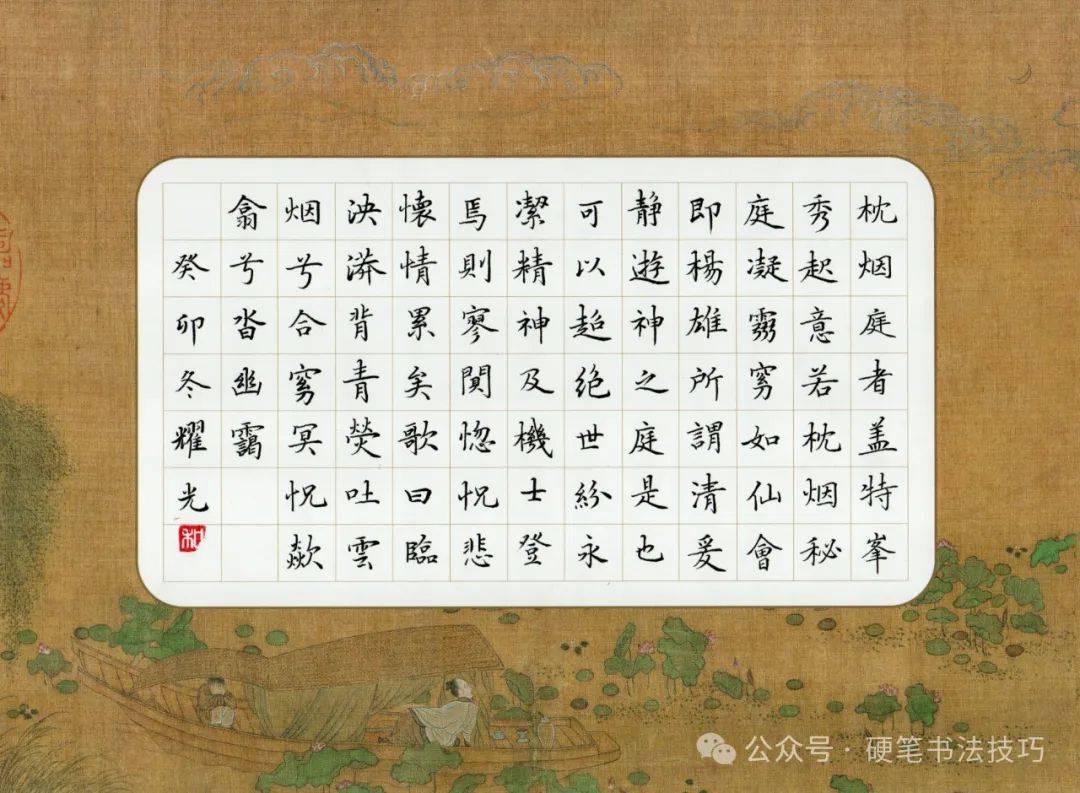 枕烟庭者盖特峯
秀起意若枕烟秘
庭凝霧穷如仙會
即楊雄所謂清爰
静遊神之庭是也
可以超绝世紛永
潔精神及機士登
焉則寥闃惚怳悲
懷情累矣歌曰臨
泱漭背青熒吐雲
烟兮合穷冥怳欻
翕兮沓幽靄
癸卯冬耀光
和
公众号·硬笔书法技巧